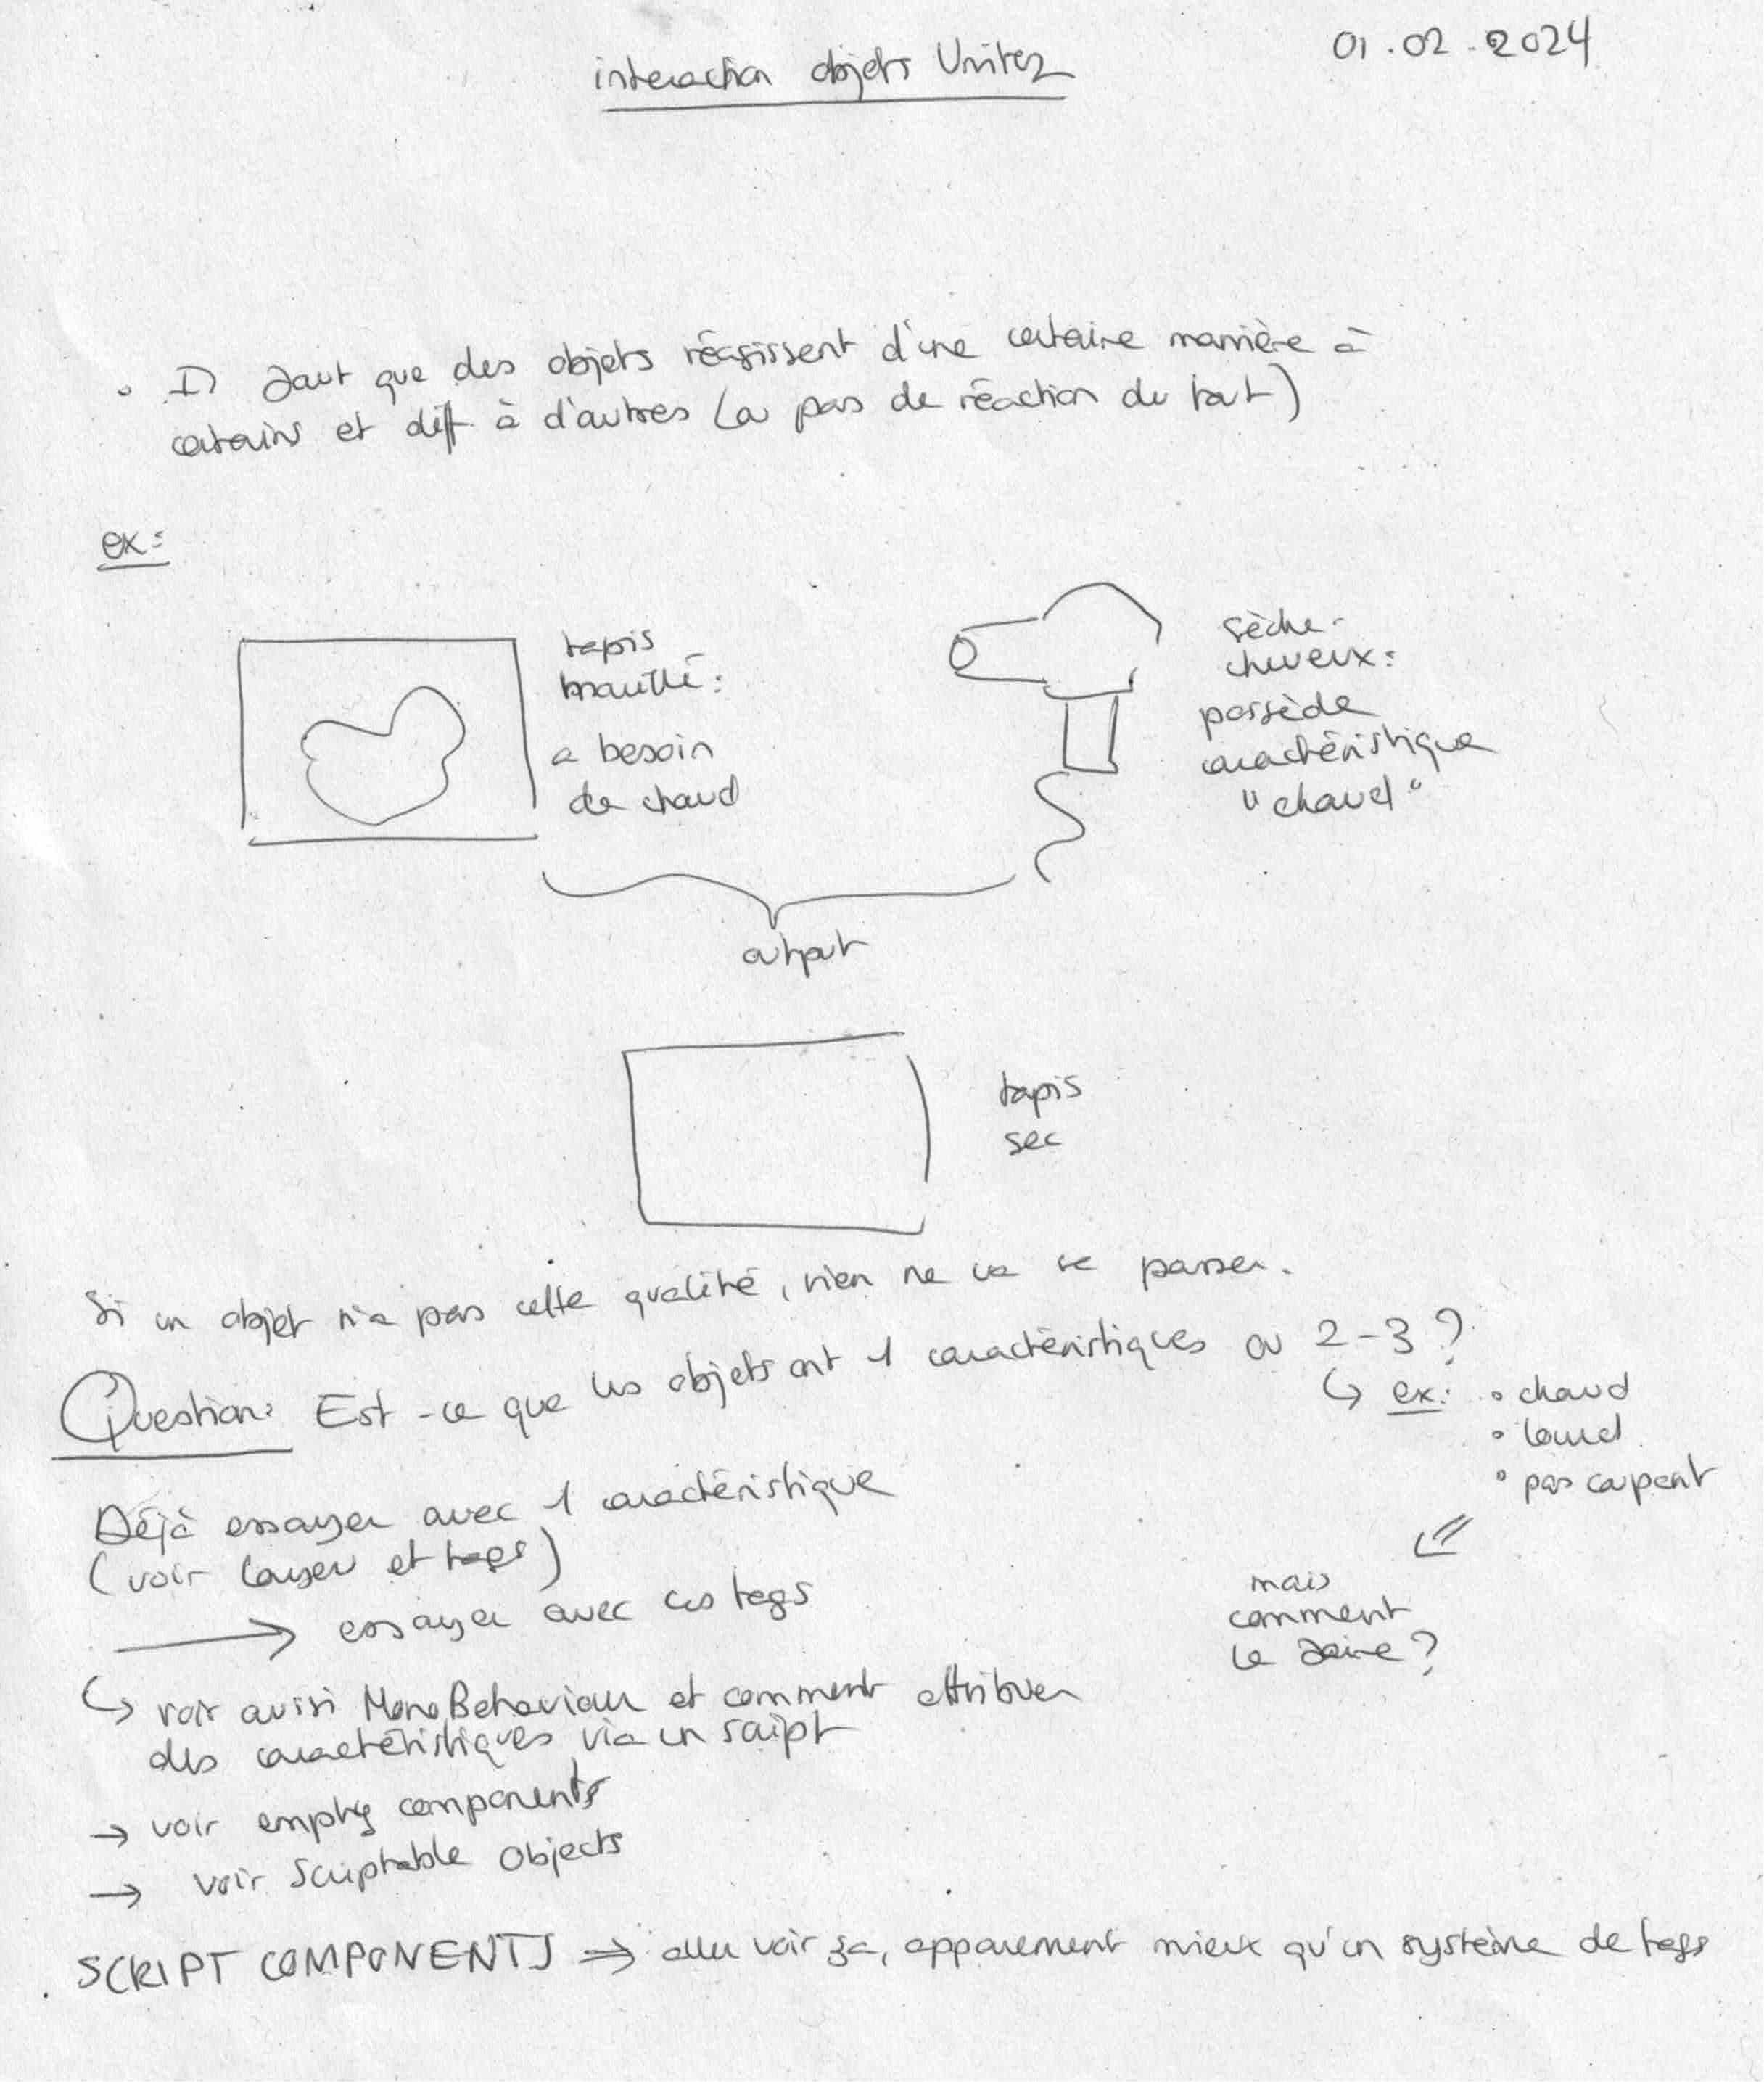 01.02.2024
interaction objets Unity
• Il faut que des objets réagissent d'une certaine manière à
certains et diff à d'autres (ou pas de réaction du tout)
ex:
tapis
mouillé:
a besoin
de chaud
sèche-
cheveux:
possède
caractéristique
"chaud"
output
tapis
sec
Si un objet n'a pas cette qualité, rien ne va se passer.
Question: Est-ce que les objets ont 1 caractéristiques ou 2-3?
↳ ex: • chaud
• lourd
• pas coupant
⇙
mais
comment
le faire?
Déjà essayer avec 1 caractéristique
(voir layer et tags)
→ essayer avec les tags
↳ voir aussi MonoBehaviour et comment attribuer
des caractéristiques via un script
→ voir empty components
→ voir Scriptable Objects
SCRIPT COMPONENTS ⇒ aller voir ça, apparement mieux qu'un système de tags